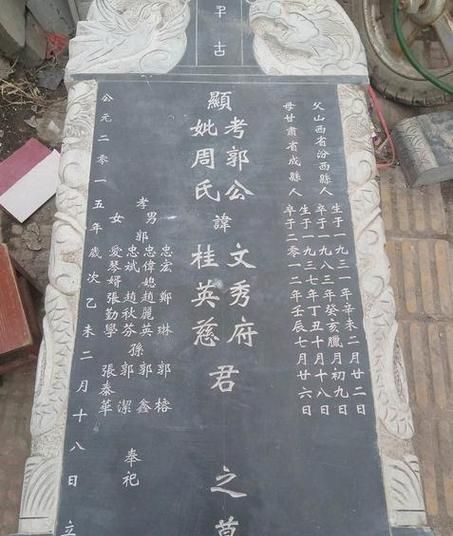 千古
父山西省汾西縣人 生于一九三一年辛未二月廿二日
卒于一九八三年癸亥臘月初九日
母甘肅省成縣人 生于一九三七年丁丑十月十八日
卒于二零一二年壬辰七月廿六日
顯
考郭公諱文秀府君
妣周氏桂英慈
之墓
忠宏 鄭琳 郭榕
孝男郭忠偉媳趙麗英孫郭鑫
忠斌 趙秋芬 郭潔
女 愛琴婿張勤學 張泰華
奉祀
公元二零一五年歲次乙未二月十八日立